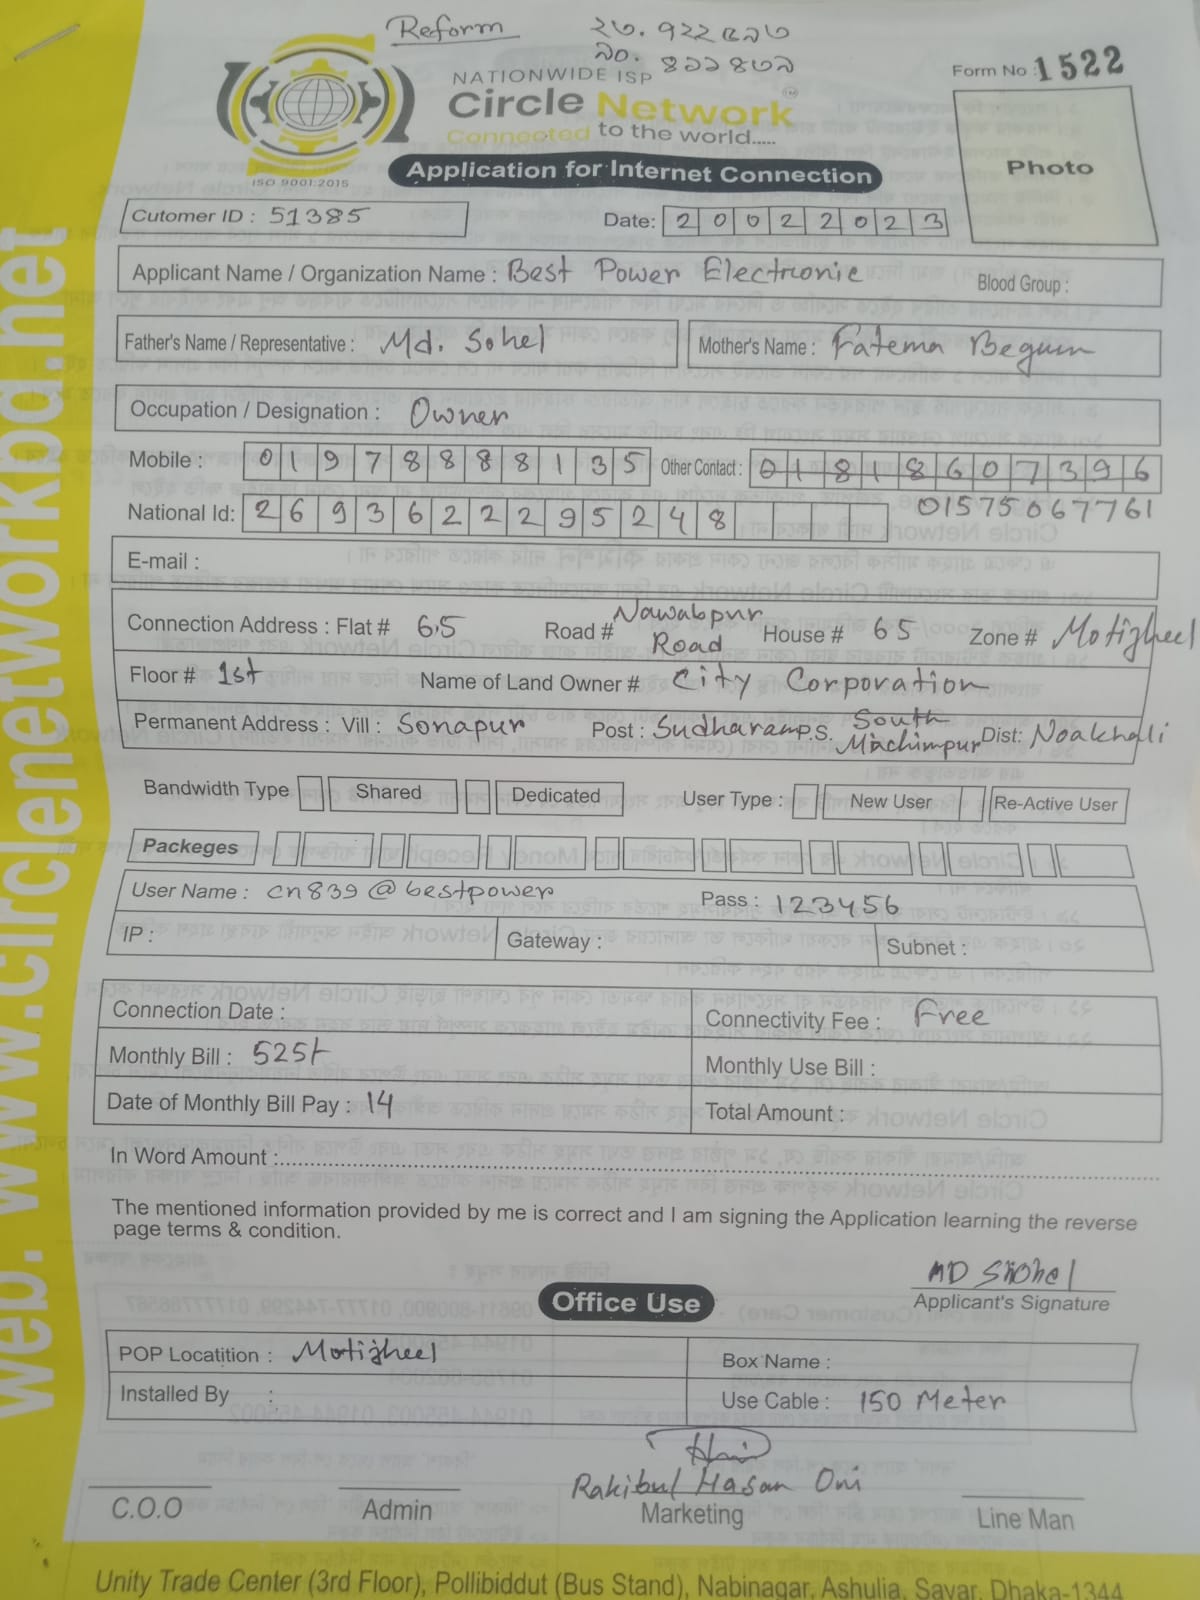 Reform
২৩. ৭২২৫৯৩
৯০. ৪২২৪৩৯
NATIONWIDE ISP
Form No : 1522
Circle Network™
Connected to the world.....
ISO 9001:2015
Application for Internet Connection
Photo
Cutomer ID : 51385
Date: 20022023
Applicant Name / Organization Name : Best Power Electronic
Blood Group :
Father's Name / Representative : Md. Sohel
Mother's Name : Fatema Begum
Occupation / Designation : Owner
Mobile : 01978888135 Other Contact : 01818607396
National Id: 2693622295248 01575067761
E-mail :
Connection Address : Flat # 65 Road # Nawabpur Road House # 65 Zone # Motijheel
Floor # 1st Name of Land Owner # City Corporation
Permanent Address : Vill : Sonapur Post : Sudharam P.S. South Machimpur Dist: Noakhali
Bandwidth Type Shared Dedicated User Type : New User Re-Active User
Packeges
User Name : cn839@bestpower Pass : 123456
IP : Gateway : Subnet :
Connection Date : Connectivity Fee : Free
Monthly Bill : 525t Monthly Use Bill :
Date of Monthly Bill Pay : 14 Total Amount :
In Word Amount :
The mentioned information provided by me is correct and I am signing the Application learning the reverse
page terms & condition.
MD Shohel
Applicant's Signature
Office Use
POP Locatition : Motijheel Box Name :
Installed By : Use Cable : 150 Meter
Rakibul Hasan Oni
C.O.O Admin Marketing Line Man
Unity Trade Center (3rd Floor), Pollibiddut (Bus Stand), Nabinagar, Ashulia, Savar, Dhaka-1344
web: www.circlenetworkbd.net